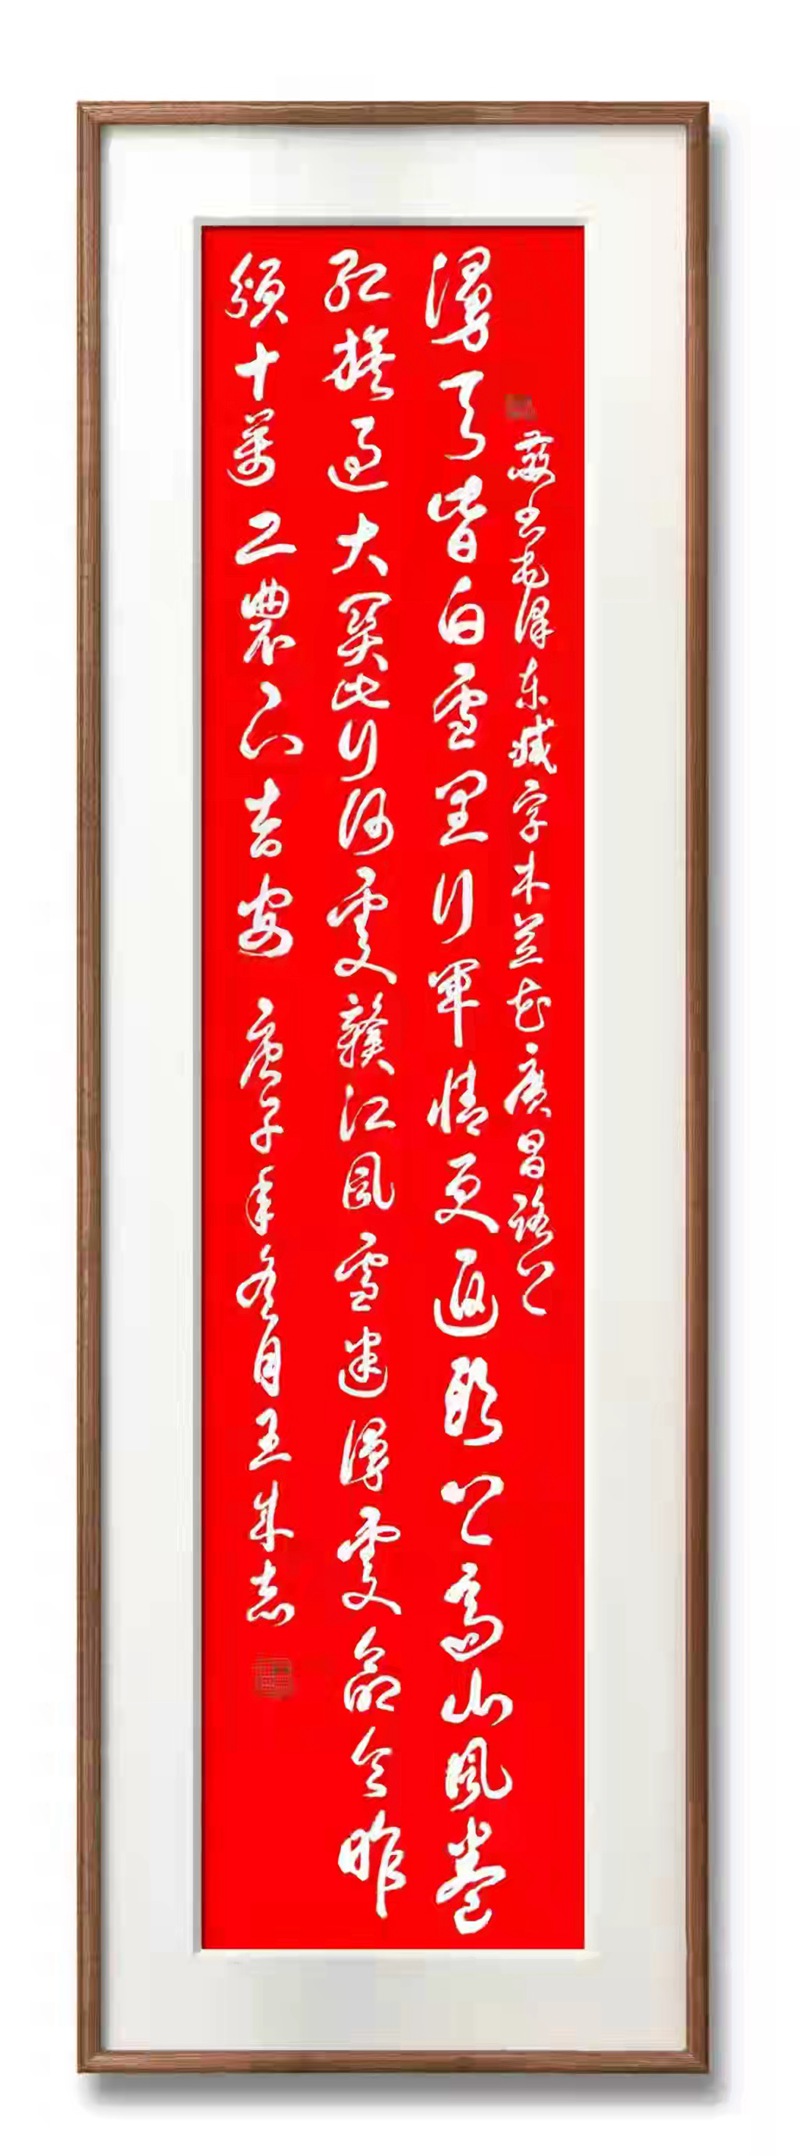 敬书毛泽东减字木兰花廣昌路上
漫天皆白雪里行軍情更迫头上高山風卷
红旗過大關此行何處赣江風雪迷漫處命令昨
頒十萬工農下吉安 庚子年冬月王志